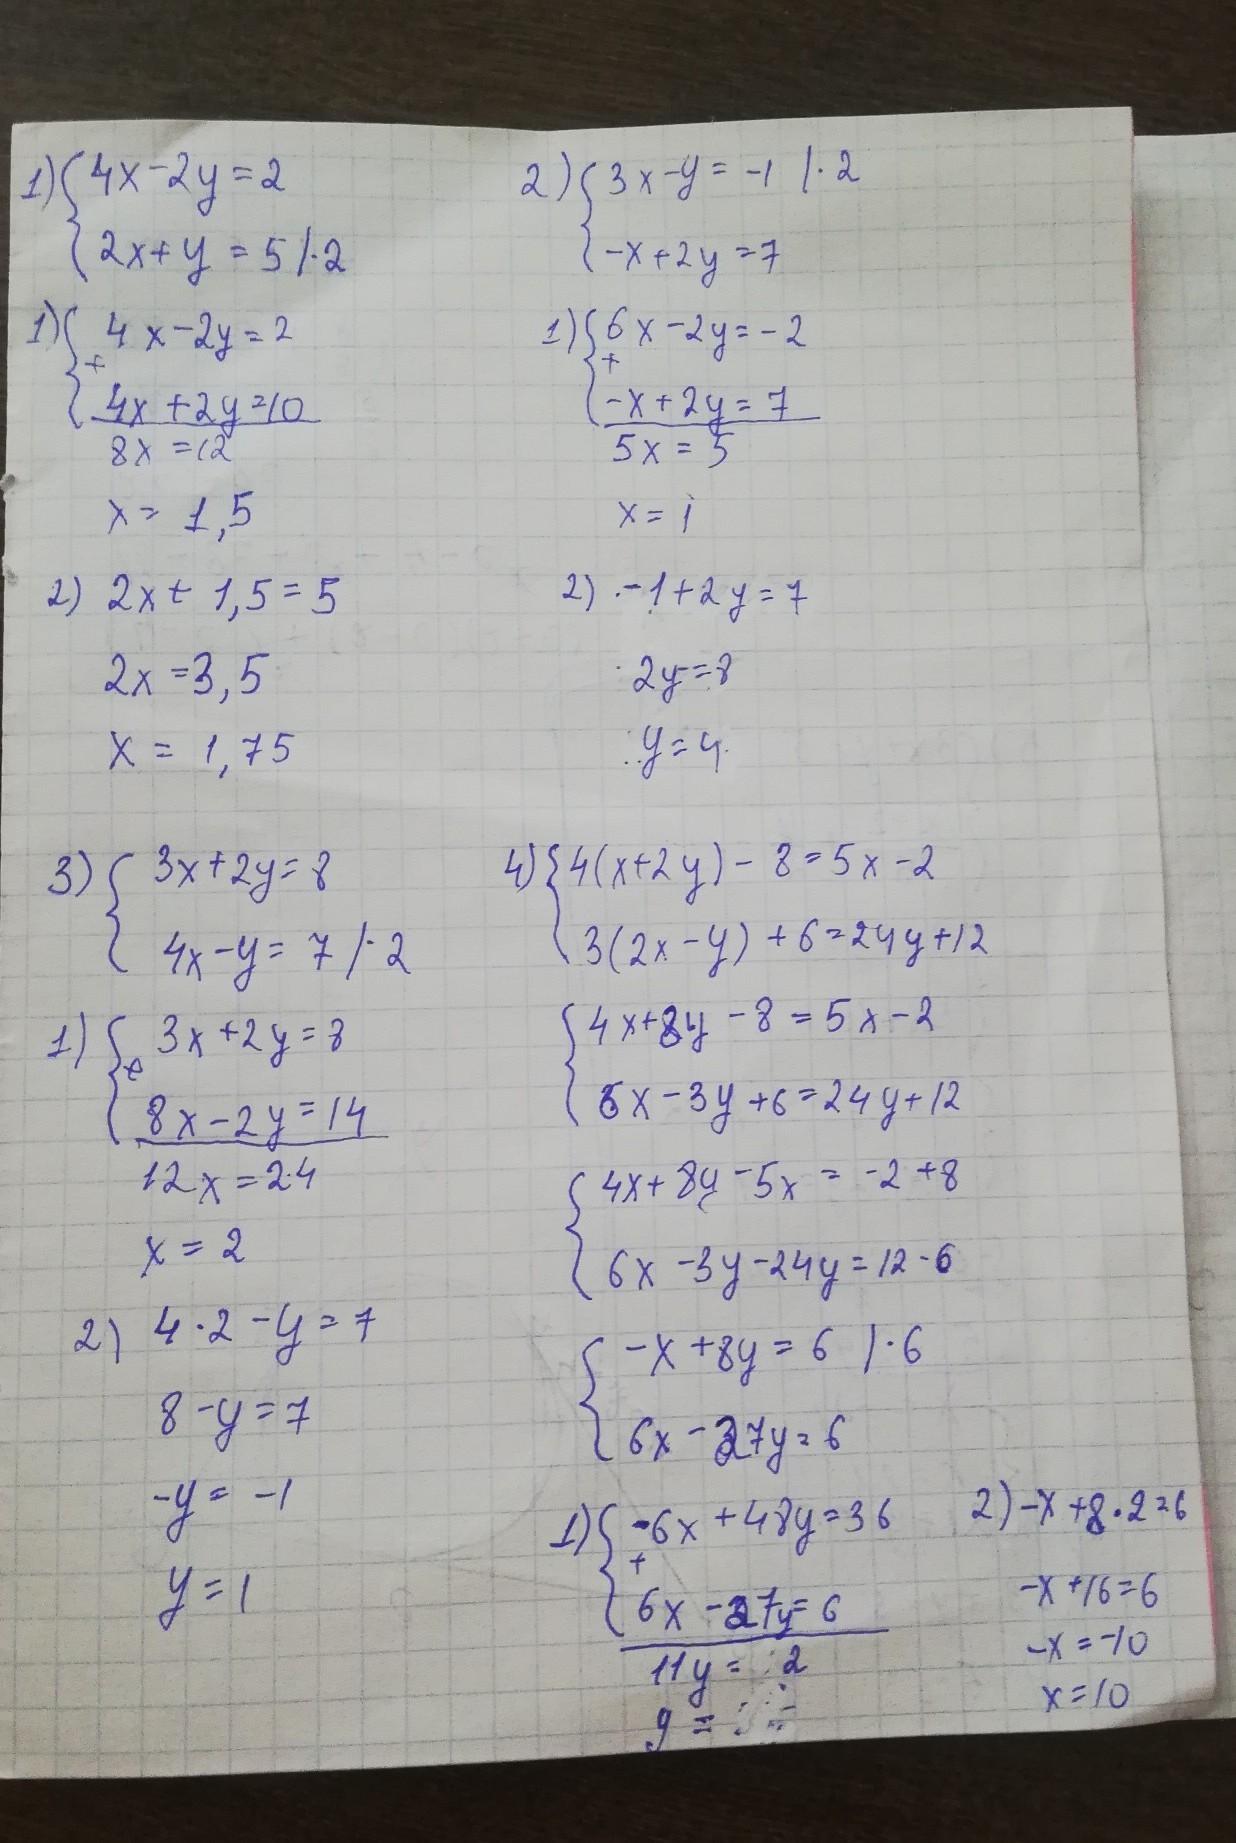 1) { 4x-2y=2
2x+y=5 |·2
1) { 4x-2y=2
+
4x+2y=10
8x=12
x= 1,5
2) 2x+ 1,5=5
2x=3,5
x = 1,75
2) { 3x-y= -1 |·2
-x+2y=7
1) { 6x-2y=-2
+
-x+2y=7
5x=5
x=1
2) -1+2y=7
2y=8
y=4
3) { 3x+2y=8
4x-y=7 |·2
1) { 3x+2y=8
+
8x-2y=14
12x=24
x=2
2) 4·2-y=7
8-y=7
-y=-1
y=1
4) { 4(x+2y)-8=5x-2
3(2x-y)+6=24y+12
{ 4x+8y-8=5x-2
6x-3y+6=24y+12
{ 4x+8y-5x=-2+8
6x-3y-24y=12-6
{ -x+8y=6 |·6
6x-27y=6
1) { -6x+48y=36
+
6x-27y=6
11y= 2
y =
2) -x+8·2=6
-x+16=6
-x=-10
x=10